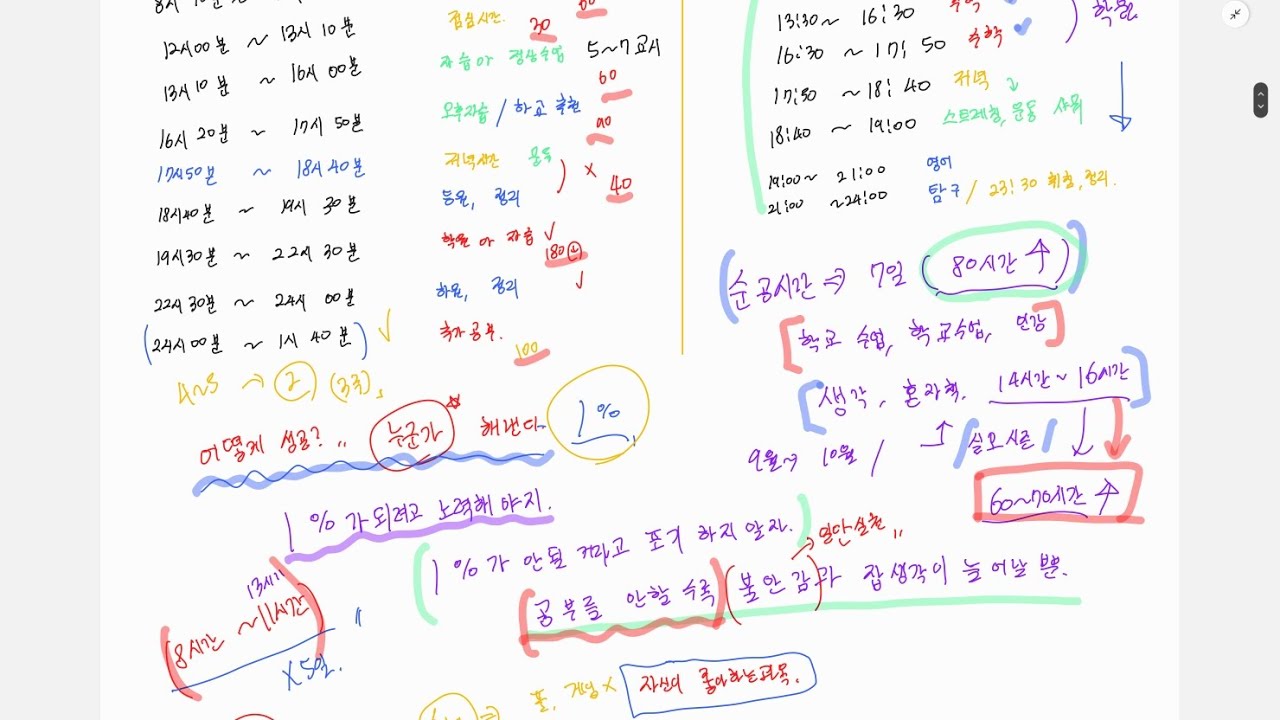 점심시간. 30 60
12시00분 ~ 13시 10분
자습 or 정상수업 5~7교시
13시 10분 ~ 16시 00분
60
오후자습 / 학교
16시 20분 ~ 17시 50분
90
저녁시간 운동
17시50분 ~ 18시 40분
) × 40
등원, 정리
18시40분 ~ 19시 30분
학원 or 자습 ✓
180
19시30분 ~ 22시 30분
하원, 정리 ✓
22시 30분 ~ 24시 00분
추가공부.
(24시00분 ~ 1시 40분) ✓
100
4~5 → ② (3주),
어떻게 성공? ,, 누군가 해낸다 1%
1%가 되려고 노력해 야지.
1%가 안될 거라고 포기 하지 말자.
→ 일단 실천 ,,
공부를 안할 수록 (불안감)과 잡생각이 늘어날 뿐.
13시간
(8시간 ~11시간) "
×5일.
⇒ 폰, 게임 × 자신이 좋아하는과목.
13:30~ 16:30 ✓
16:30 ~ 17:50 수학 ✓
) 학원
17:50 ~ 18:40 저녁
18:40 ~ 19:00 스트레칭, 운동 샤워
19:00~ 21:00 영어
21:00 ~24:00 탐구 / 23:30 취침, 정리.
순공시간 ⇒ 7일 (80시간 ↑)
[학교 수업, 학교수업, 인강]
[생각, 혼자학. 14시간~16시간]
9월→ 10월 / ↑ /실모시즌/ ↓
60~70시간 ↑